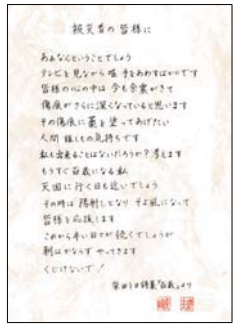 被災者の皆様に
あぁなんということでしょう
テレビを見ながら唯手をあわすばかりです
皆様の心の中は今も余震がきて
傷痕がさらに深くなっていると思います
その傷痕に薬を塗ってあげたい
人間誰しもの気持ちです
私も出来ることはないだろうか?考えます
もうすぐ百歳になる私
天国に行く日も近いでしょう
その時は陽射しとなりそよ風になって
皆様を応援します
これから辛い日々が続くでしょうが
朝はかならずやってきます
くじけないで!
柴田トヨ詩集「百歳」より